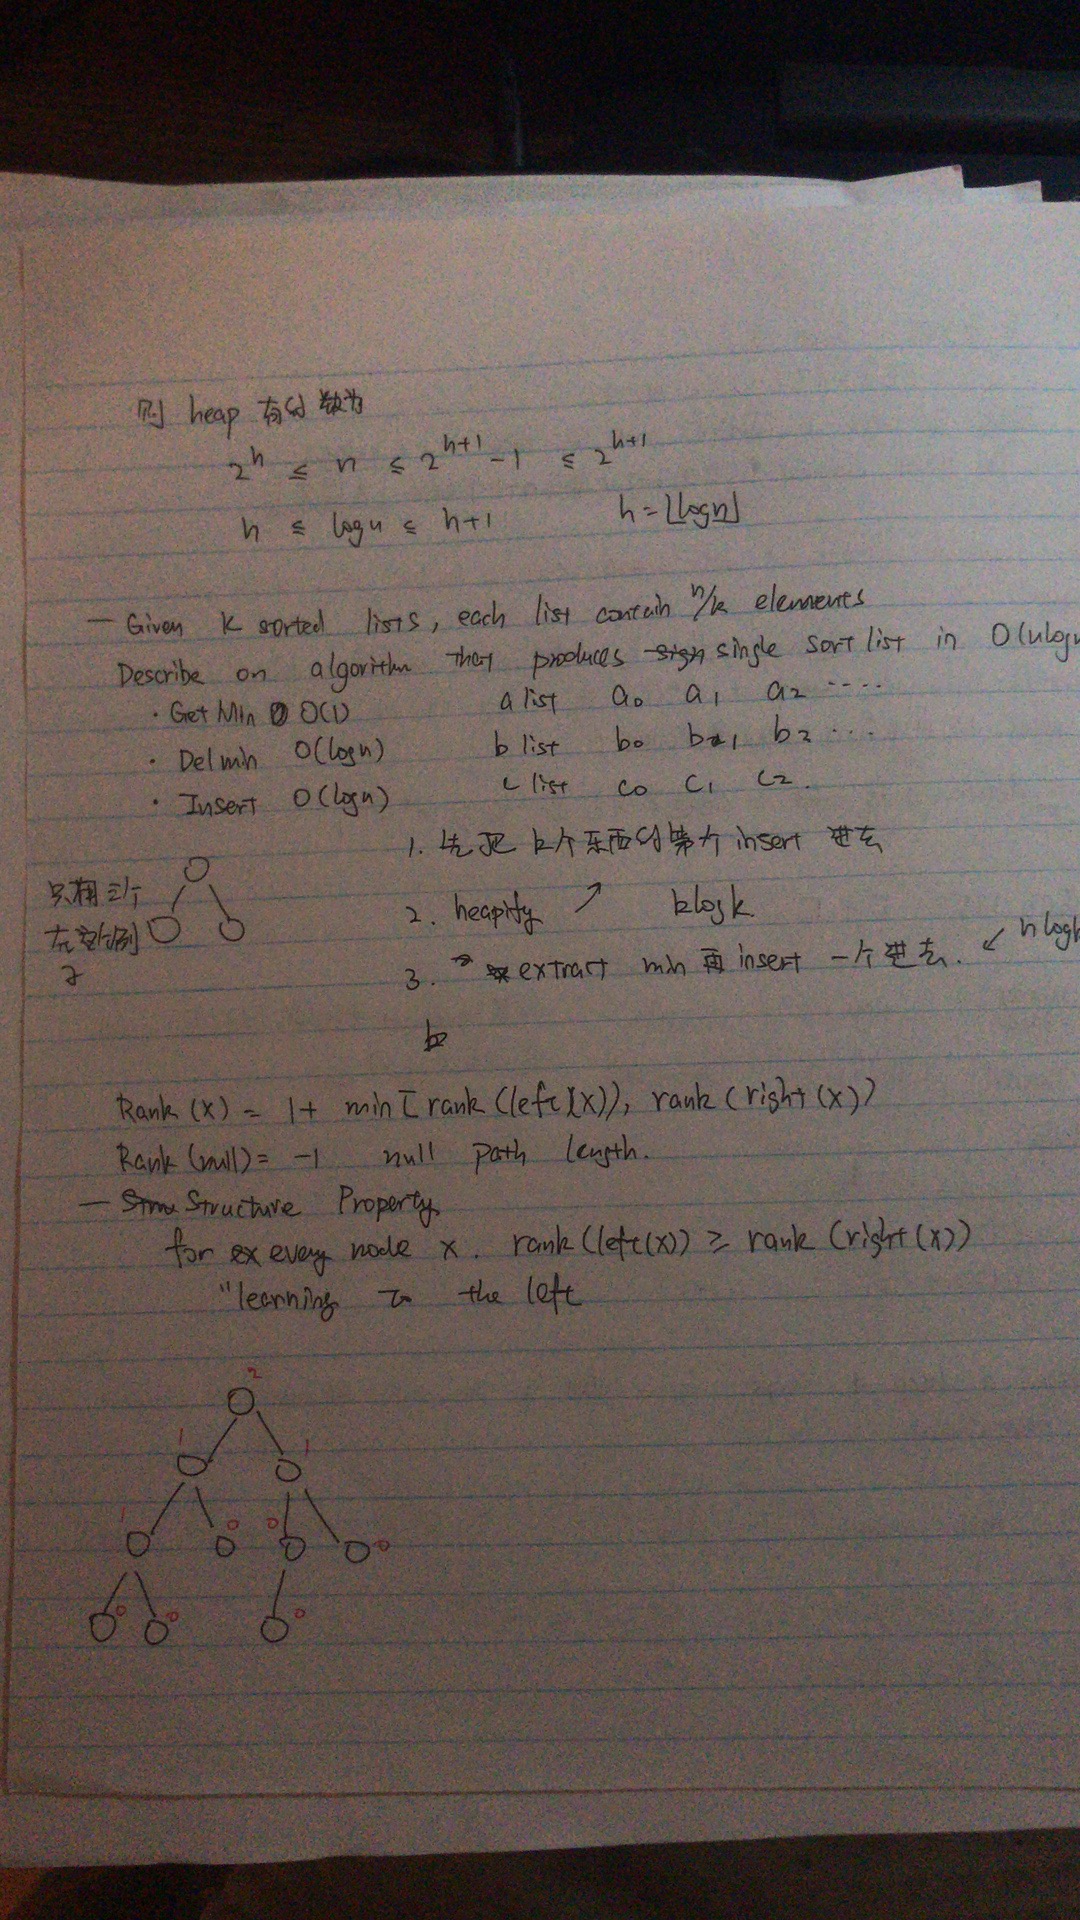 则 heap 有的数为
2^h ≤ n ≤ 2^{h+1} -1 ≤ 2^{h+1}
h ≤ logn ≤ h+1 h = ⌊logn⌋
— Given K sorted lists, each list contain n/k elements
Describe on algorithm that produces single sort list in O(nlog
· Get Min O(1) a list a0 a1 a2 ····
· Delmin O(logn) b list b0 b1 b2 ···
· Insert O(logn) c list c0 c1 c2.
1. 先把 k个东西的第个 insert 进去
只相三个
2. heapify ↗ klogk.
左 例
3. → extract min 再 insert 一个进去. ↙ nlog
Rank (x) = 1+ min [rank (left(x)), rank (right (x))
Rank (null) = -1 null path length.
— Structure Property
for ex every node x. rank (left(x)) ≥ rank (right (x))
"learning to the left
2
1 1
1 0 0 0
0 0 0